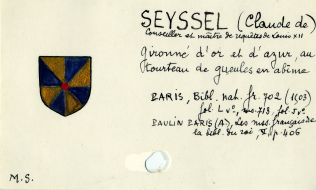 SEYSSEL (Claude de)
Conseiller et maître de requêtes de Louis XII
Gironné d'or et d'azur, au
tourteau de gueules en abîme
PARIS, Bibl. nat. fr. 702 (1503)
fol. 1 v°, ms. 713, fol. 5 v°
PAULIN PARIS (A), Les mss. français de
la bibl. du roi, p. 406
M.S.